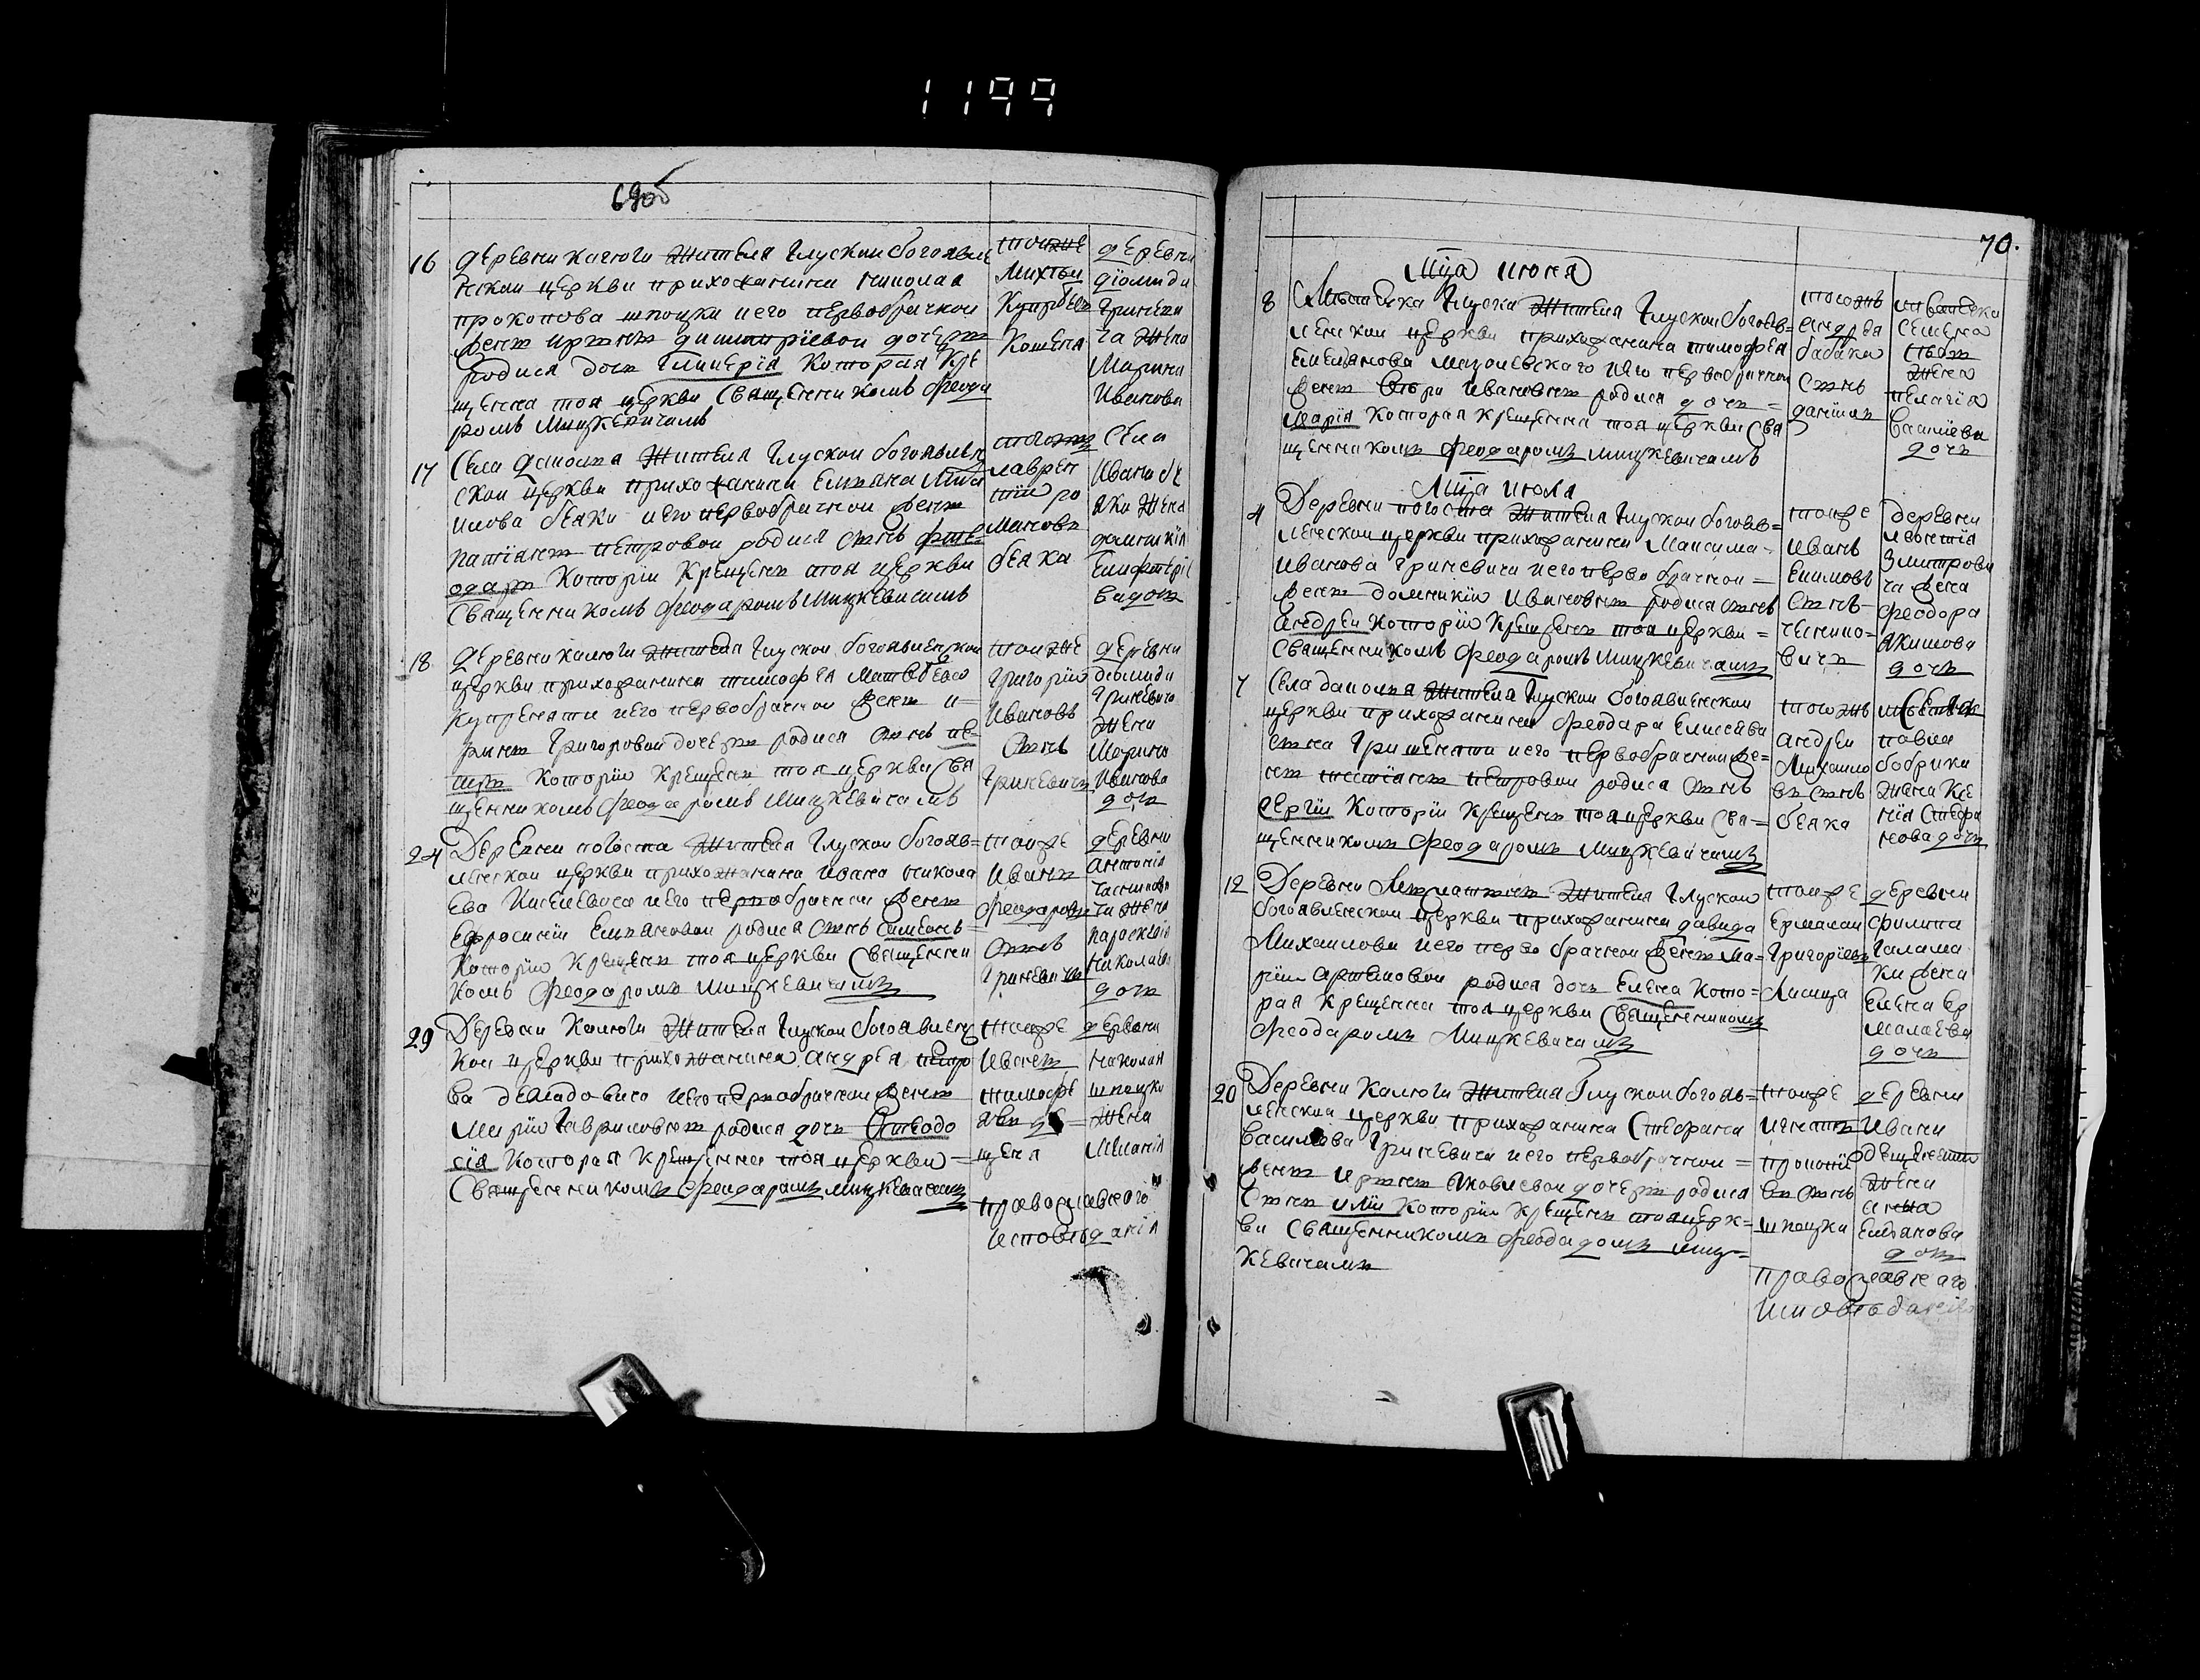 1199
69об
16 деревни калюги жителя глускои богоявле
нскои церкви прихожанина николая
прокопова шпоцки и его первобрачнои
жены ирины димитріевои дочеры
родися дочь гликерія Которая Кре
щенна тоя церкви Священникомъ Феодо
ромъ Мицкевичамъ
тоижже
Михаил
Котена
деревни
діомиди
Гриневи
ча жена
Марина
Иванова
17 Села даколна Жителя глускои богоявлен
скои церкви прихожанина Емилана
беяки и его первобрачнои жены
татіаны петровои родися сынъ
Которіи Крещенъ тоя церкви
Священникомъ Феодаромъ Мицкевичамъ
тогожъ
лаврен
тіи ро
мановъ
беяка
Села
Ивана бе
яки жена
домникія
дочь
18 Деревни калюги жителя глускои богоявленскои
церкви прихожанина тимофея Матвеева
Купренати и его первобрачнои жены и=
рины Григоровои дочеры родися сынъ пе
тръ Которіи Крещенъ тоя церкви Свя
щенникомъ Феодаромъ Мицкевичамъ
тоиже
Григоріи
Ивановъ
Сынъ
Гриневичъ
деревни
диомиди
Гриневича
жена
Марина
Иванова
дочь
24 Деревни погоста Жителя Глускои богояв=
ленскои церкви прихожанина Ивана никола
ева Киселевича и его первобрачнои жены
Ефросиніи Емиановои родися сынъ Симеонъ
Которіи Крещенъ тоя церкви Священни
комъ Феодаромъ Мицкевичамъ
тоиже
Иванъ
Феодаровъ
Сынъ
Гриневичъ
деревни
антонія
ча жена
параскевія
николаева
дочь
29 Деревни Калюги Жителя глускои богоявленс
кои церкви прихожанина андрея петро
ва демидовича и его первобрачнои жены
Маріи гавриловны родися дочь
сія Которая Крещенна тоя церкви=
Священникомъ Феодаромъ Мицкевичамъ
тоиже
Иванъ
тимофе
евъ де=
щеня
деревни
николая
шпоцки
жена
Меланія
православнаго
исповѣданія
70.
Мца июня
8 Мѣстечка Глуска Жителя Глускои богояв=
ленскои церкви прихожанина тимофея
Емельянова Мазолевскаго и его первобрачнои
жены Ивановны родися дочь=
Марія Которая крещенна тоя церкви Свя
щенникомъ Феодаромъ Мицкевичамъ
тогожъ
андрея
бабака
Сынъ
даніилъ
мѣстечка
семена
жена
пелагія
василіева
дочь
Мца июля
4 Деревни погоста Жителя Глускои богояв=
ленскои церкви прихожанина Максима=
Иванова Гриневича и его перво брачнои=
жены домникіи Ивановны родися сынъ
андреи Которіи Крещенъ тоя церкви=
Священникомъ Феодаромъ Мицкевичамъ
тоиже
Иванъ
Екимовъ
Сынъ
вичъ
деревни
леонтія
Змитрови
ча жена
Феодора
Якимова
дочь
7 Села даколна Жителя Глускои богоявленскои
церкви прихожанина Феодара Елисеева
сына Гришенати и его первобрачнои же=
ны петровои родися сынъ
Сергіи Которіи Крещенъ тоя церкви Свя=
щенникомъ Феодаромъ Мицкевичамъ
тогожъ
андреи
Михаило
въ сынъ
беяка
павла
бобрика
жена Ксе
нія Стефа
нова дочь
12 Деревни Жителя Глускои
богоявленскои церкви прихожанина давида
Михаилова и его перво брачнои жены Ма=
ріи артемовои родися дочь Елена Кото=
рая Крещенна тоя церкви Священникомъ
Феодаромъ Мицкевичамъ
тоиже
Ермолаи
Григоріевъ
Лисица
деревни
филипа
галама
ки жена
Елена Ер
малаева
дочь
20 Деревни Калюги Жителя Глускои богояв=
ленскои церкви прихожанина Стефана
Василева Гриневича и его первобрачнои=
жены ирины Яковлевои дочеры родися
Сынъ илія Которіи Крещенъ тоя церк=
ви Священникомъ Феодаромъ Миц=
кевичамъ
тоиже
игнатъ
въ сынъ
шпоцки
деревни
Ивана
дещенети
жена
анна
Емелянова
дочь
православнаго
исповѣданія